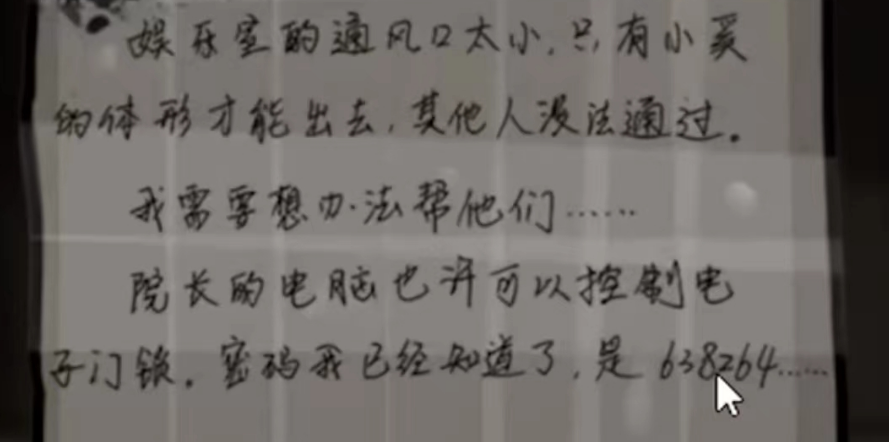 娱乐室的通风口太小，只有小奚
的体形才能出去，其他人没法通过。
我需要想办法帮他们……
院长的电脑也许可以控制电
子门锁。密码我已经知道了，是638264……